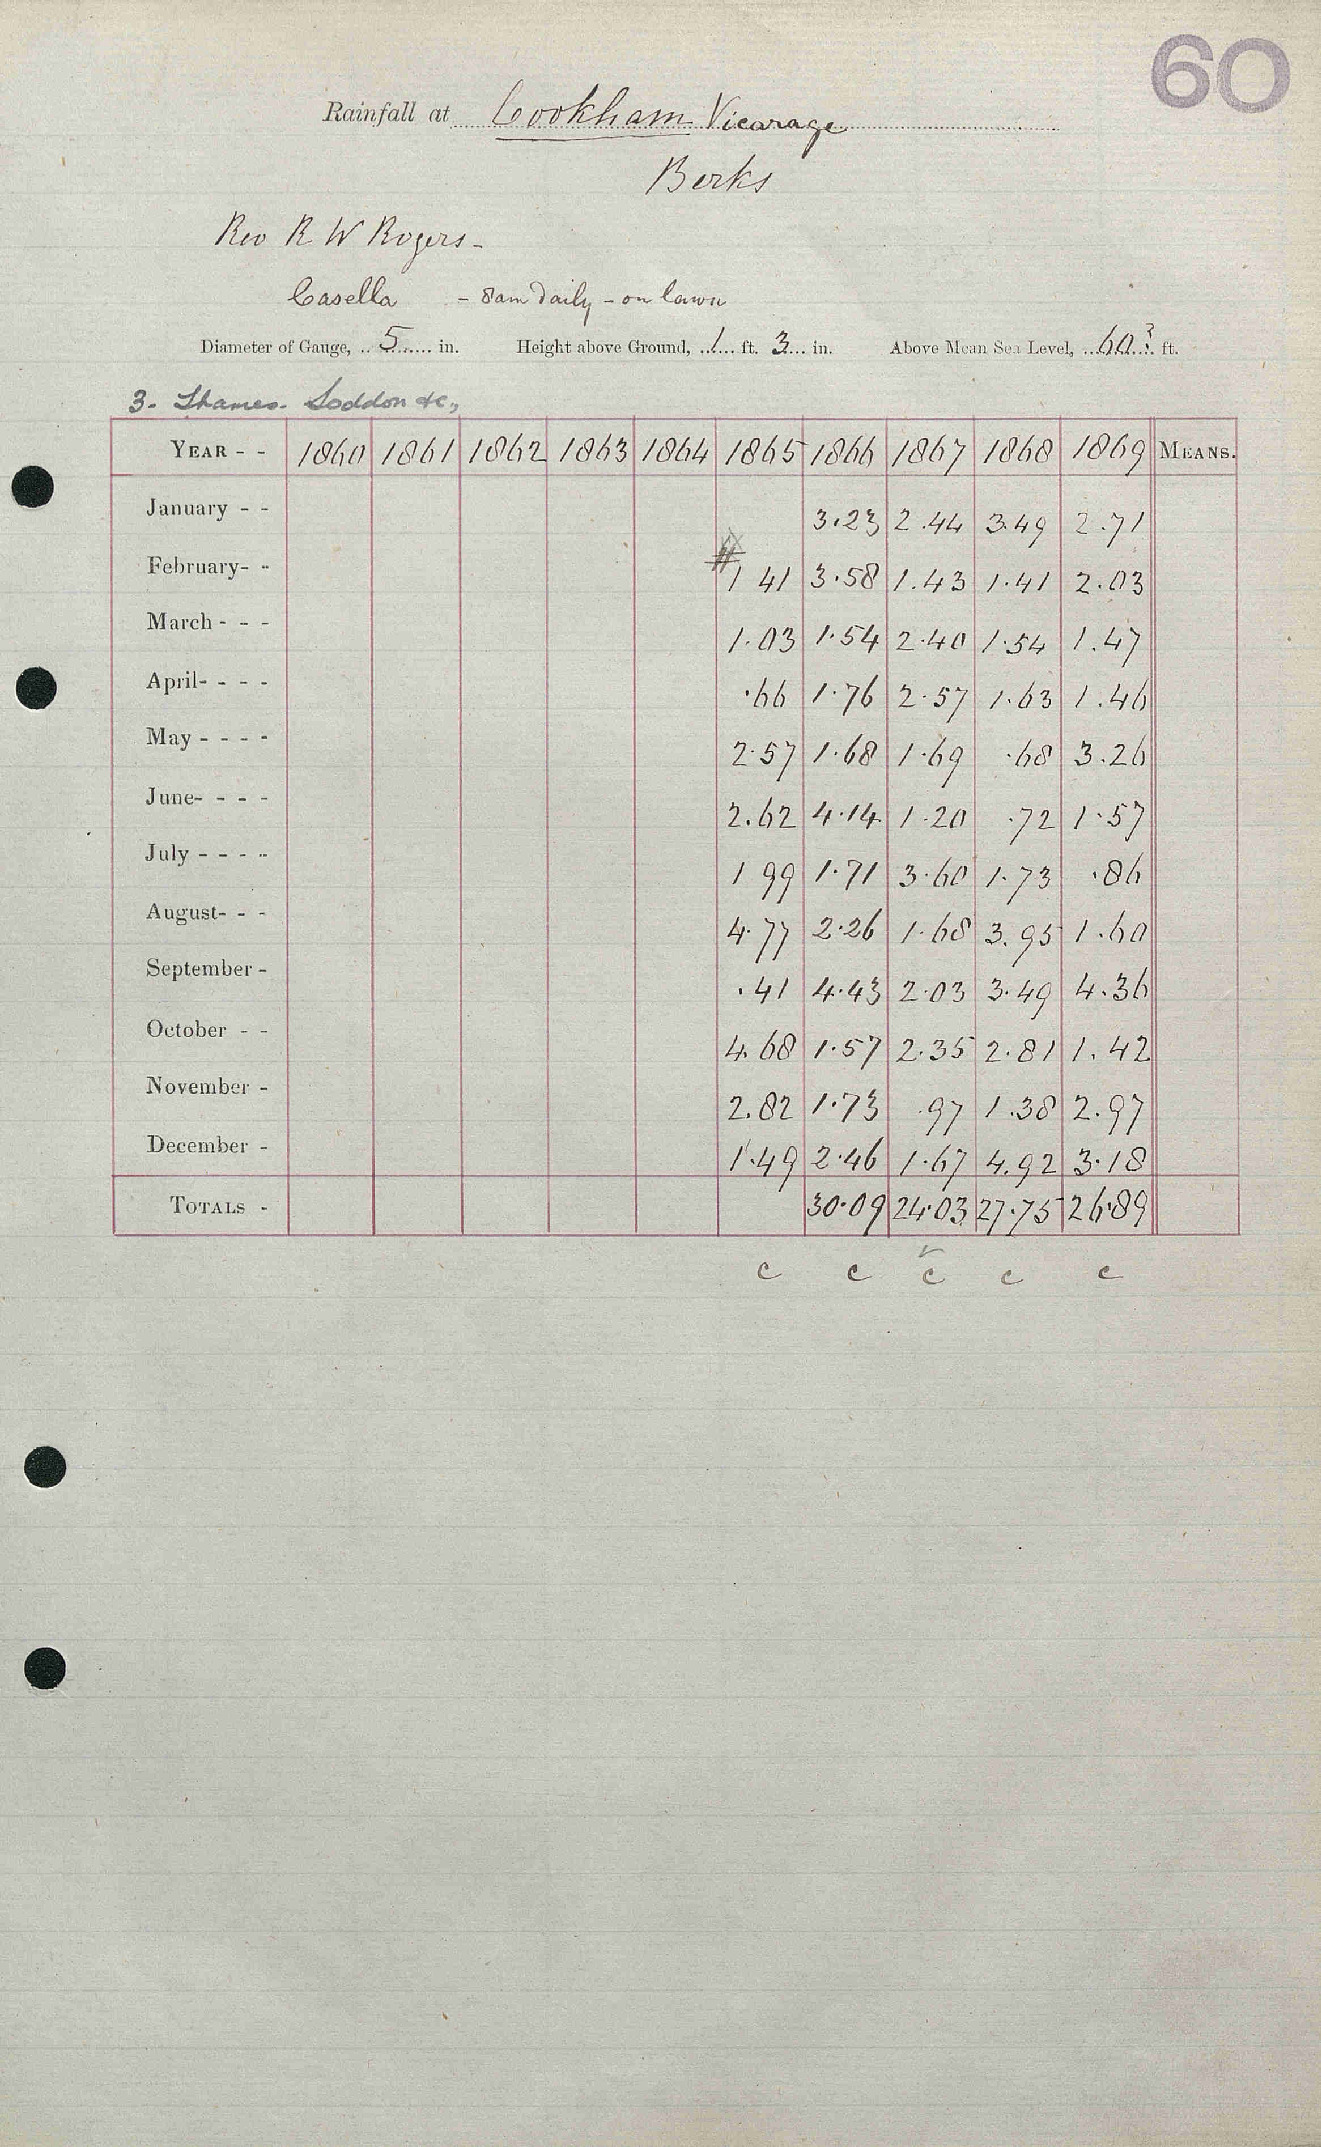 60
Rainfall at Cookham Vicarage
Berks
Rev R W Rogers -
Casella - 8am Daily - on lawn
Diameter of Gauge, 5 in. Height above Ground, 1 ft. 3 in. Above Mean Sea Level, 60? ft.
3. Thames. Loddon &c,
YEAR - - 1860 1861 1862 1863 1864 1865 1866 1867 1868 1869 MEANS.
January - - 3.23 2.44 3.49 2.71
February- - # 1 41 3.58 1.43 1.41 2.03
March - - - 1.03 1.54 2.40 1.54 1.47
April- - - - .66 1.76 2.57 1.63 1.46
May - - - - 2.57 1.68 1.69 .68 3.26
June- - - - 2.62 4.14 1.20 .72 1.57
July - - - - 1 99 1.71 3.60 1.73 .86
August- - - 4.77 2.26 1.68 3.95 1.60
September - .41 4.43 2.03 3.49 4.36
October - - 4.68 1.57 2.35 2.81 1.42
November - 2.82 1.73 .97 1.38 2.97
December - 1.49 2.46 1.67 4.92 3.18
TOTALS - 30.09 24.03 27.75 26.89
c c c c c